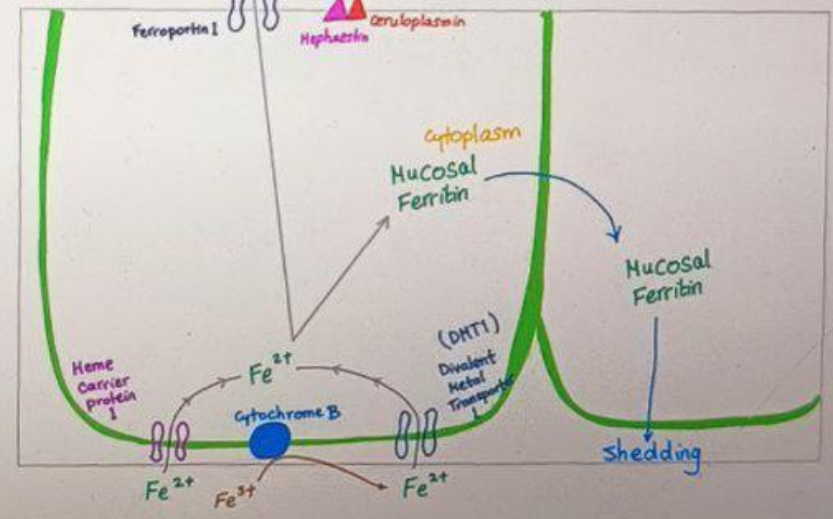 Ferroportin 1
Hephaestin
Ceruloplasmin
Cytoplasm
Mucosal
Ferritin
Mucosal
Ferritin
(DMT1)
Divalent
Metal
Transporter
1
Heme
Carrier
protein
1
Fe2+
Cytochrome B
Fe2+
Fe3+
Fe2+
Shedding